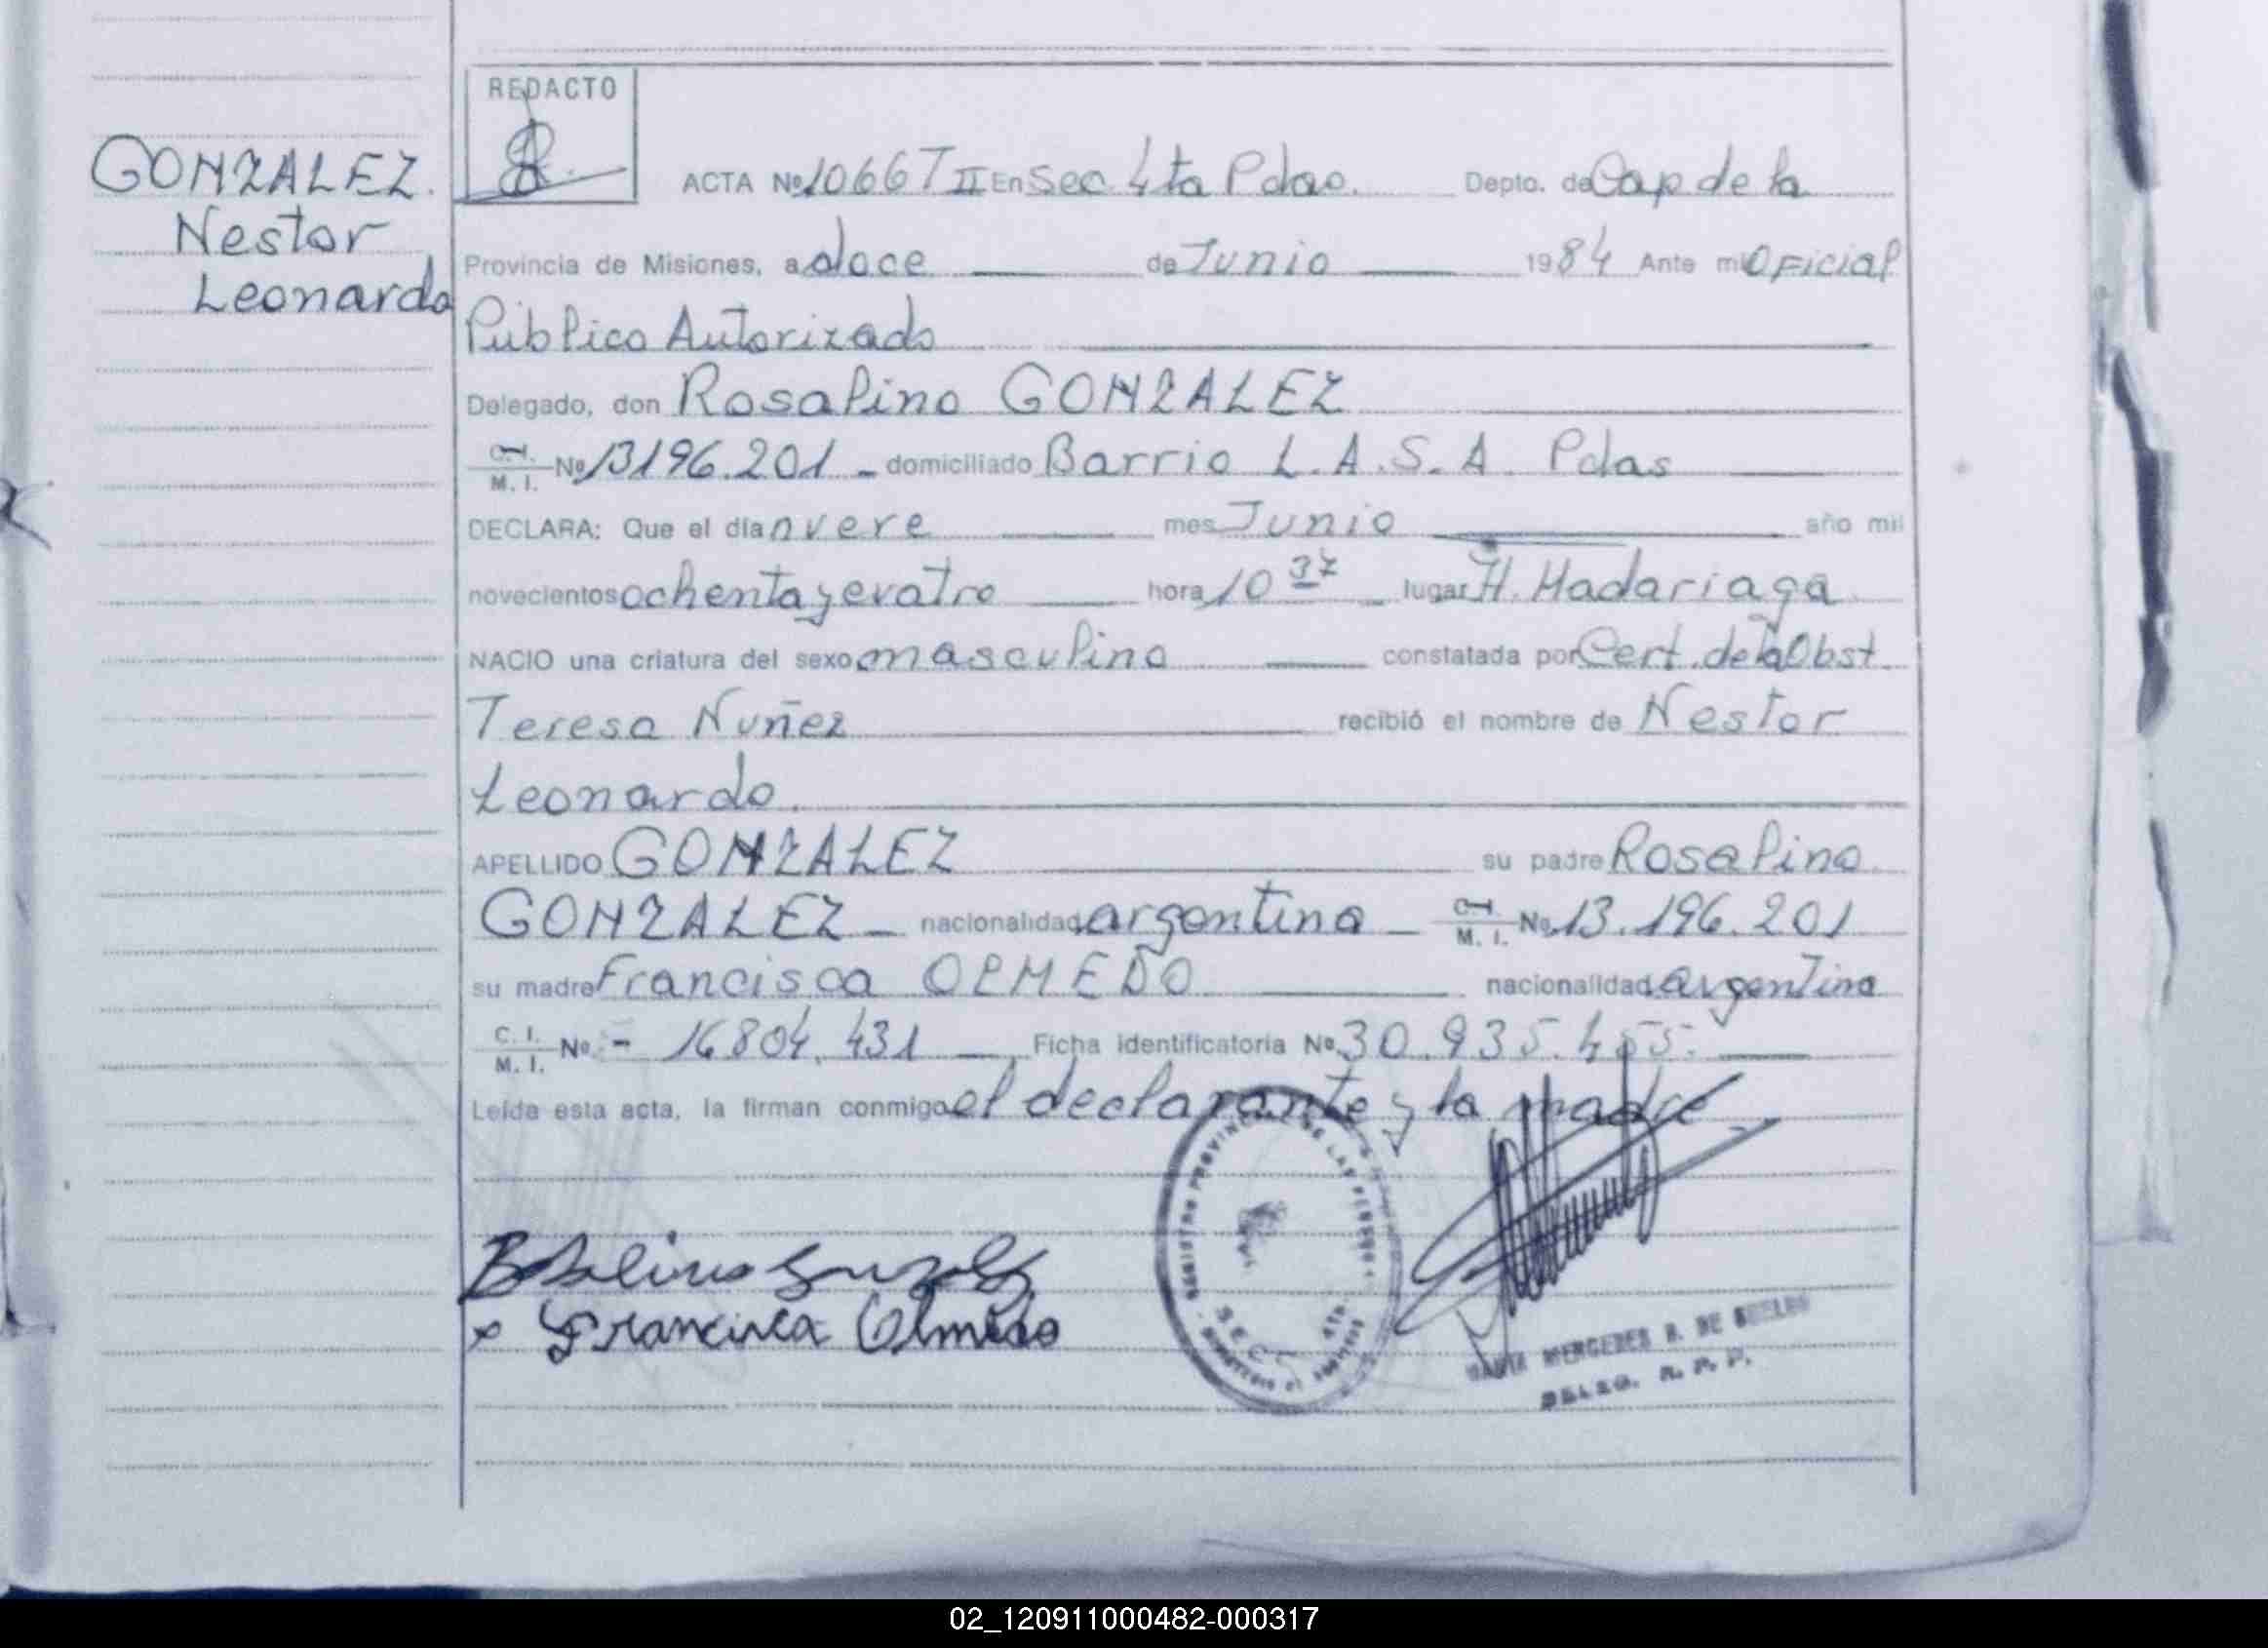 REDACTO
GONZALEZ.
Nestor
Leonardo
ACTA Nº 1066 T II En Sec. 4ta Pdas. Depto. de Cap. de la
Provincia de Misiones, a doce de Junio 1984 Ante mi Oficial
Público Autorizado
Delegado, don Rosalino GONZALEZ
C.I. M.I. Nº 13196.201 - domiciliado Barrio L.A.S.A. Pdas
DECLARA: Que el día nueve mes Junio año mil
novecientos ochenta y cuatro hora 10 37 lugar H. Madariaga
NACIO una criatura del sexo masculino constatada por Cert. de la Obst.
Teresa Nuñez recibió el nombre de Nestor
Leonardo.
APELLIDO GONZALEZ su padre Rosalino
GONZALEZ - nacionalidad argentina - C.I. M.I. Nº 13.196.201
su madre Francisca OLMEDO nacionalidad argentina
C.I. M.I. Nº - 16804.431 Ficha identificatoria Nº 30.935.455.
Leída esta acta, la firman conmigo el declarante y la madre
Rosalino Gonzalez
x Francisca Olmedo
REGISTRO PROVINCIAL DE LAS PERSONAS
SECC. 4TA.
MARIA MERCEDES R. DE
DELEG. R. P. P.
02_120911000482-000317